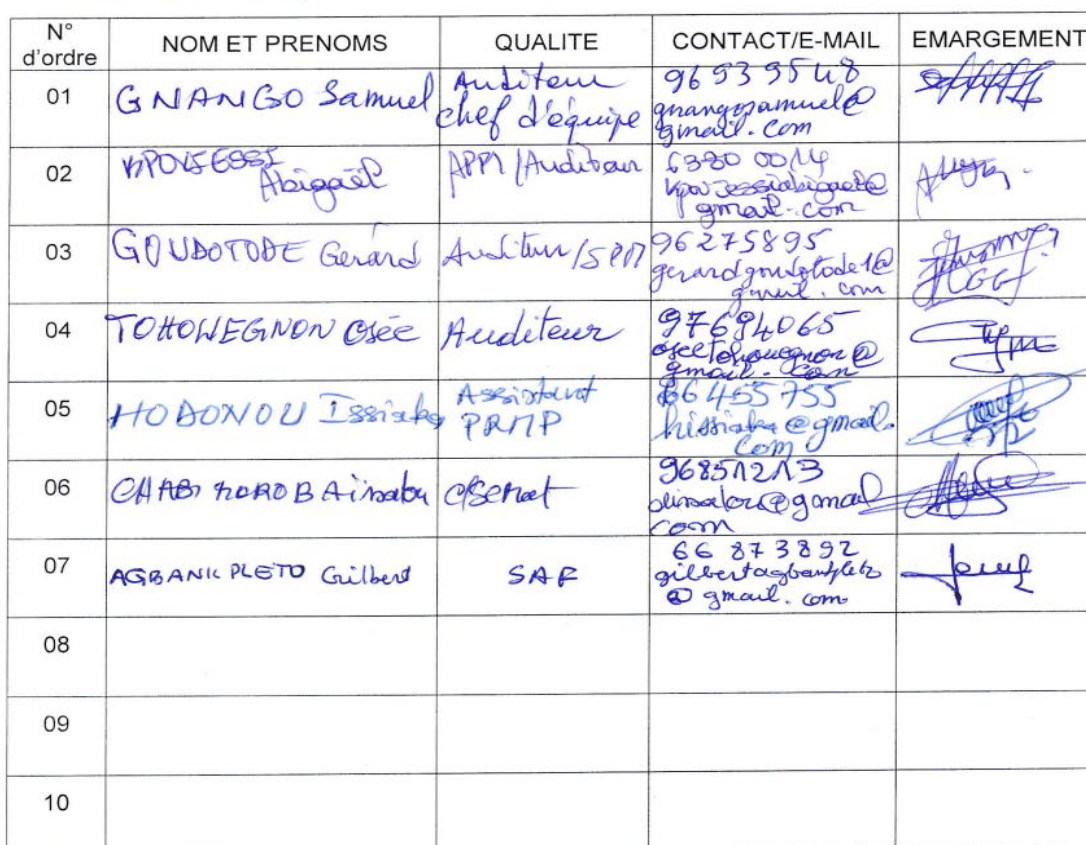 N° d'ordre NOM ET PRENOMS QUALITE CONTACT/E-MAIL EMARGEMENT
01 GNANGO Samuel Auditeur chef d'équipe 96939548 gnangosamuel@gmail.com
02 KPOVIESSI Abigaël Auditeur 63800014 gmail.com
03 GOUDOTODE Gerard Auditeur/SPM 96275895 gerardgoudotode1@gmail.com
04 TOHOUEGNON Osée Auditeur 97694065 oseetohouegnon@gmail.com
05 HODONOU Issiaka Assistant PRMP 66455755 hissiaka@gmail.com
06 CHABI 96851213
07 AGBANKPLETO Gilbert SAF 66873892 gilbertagbankpleto@gmail.com
08
09
10